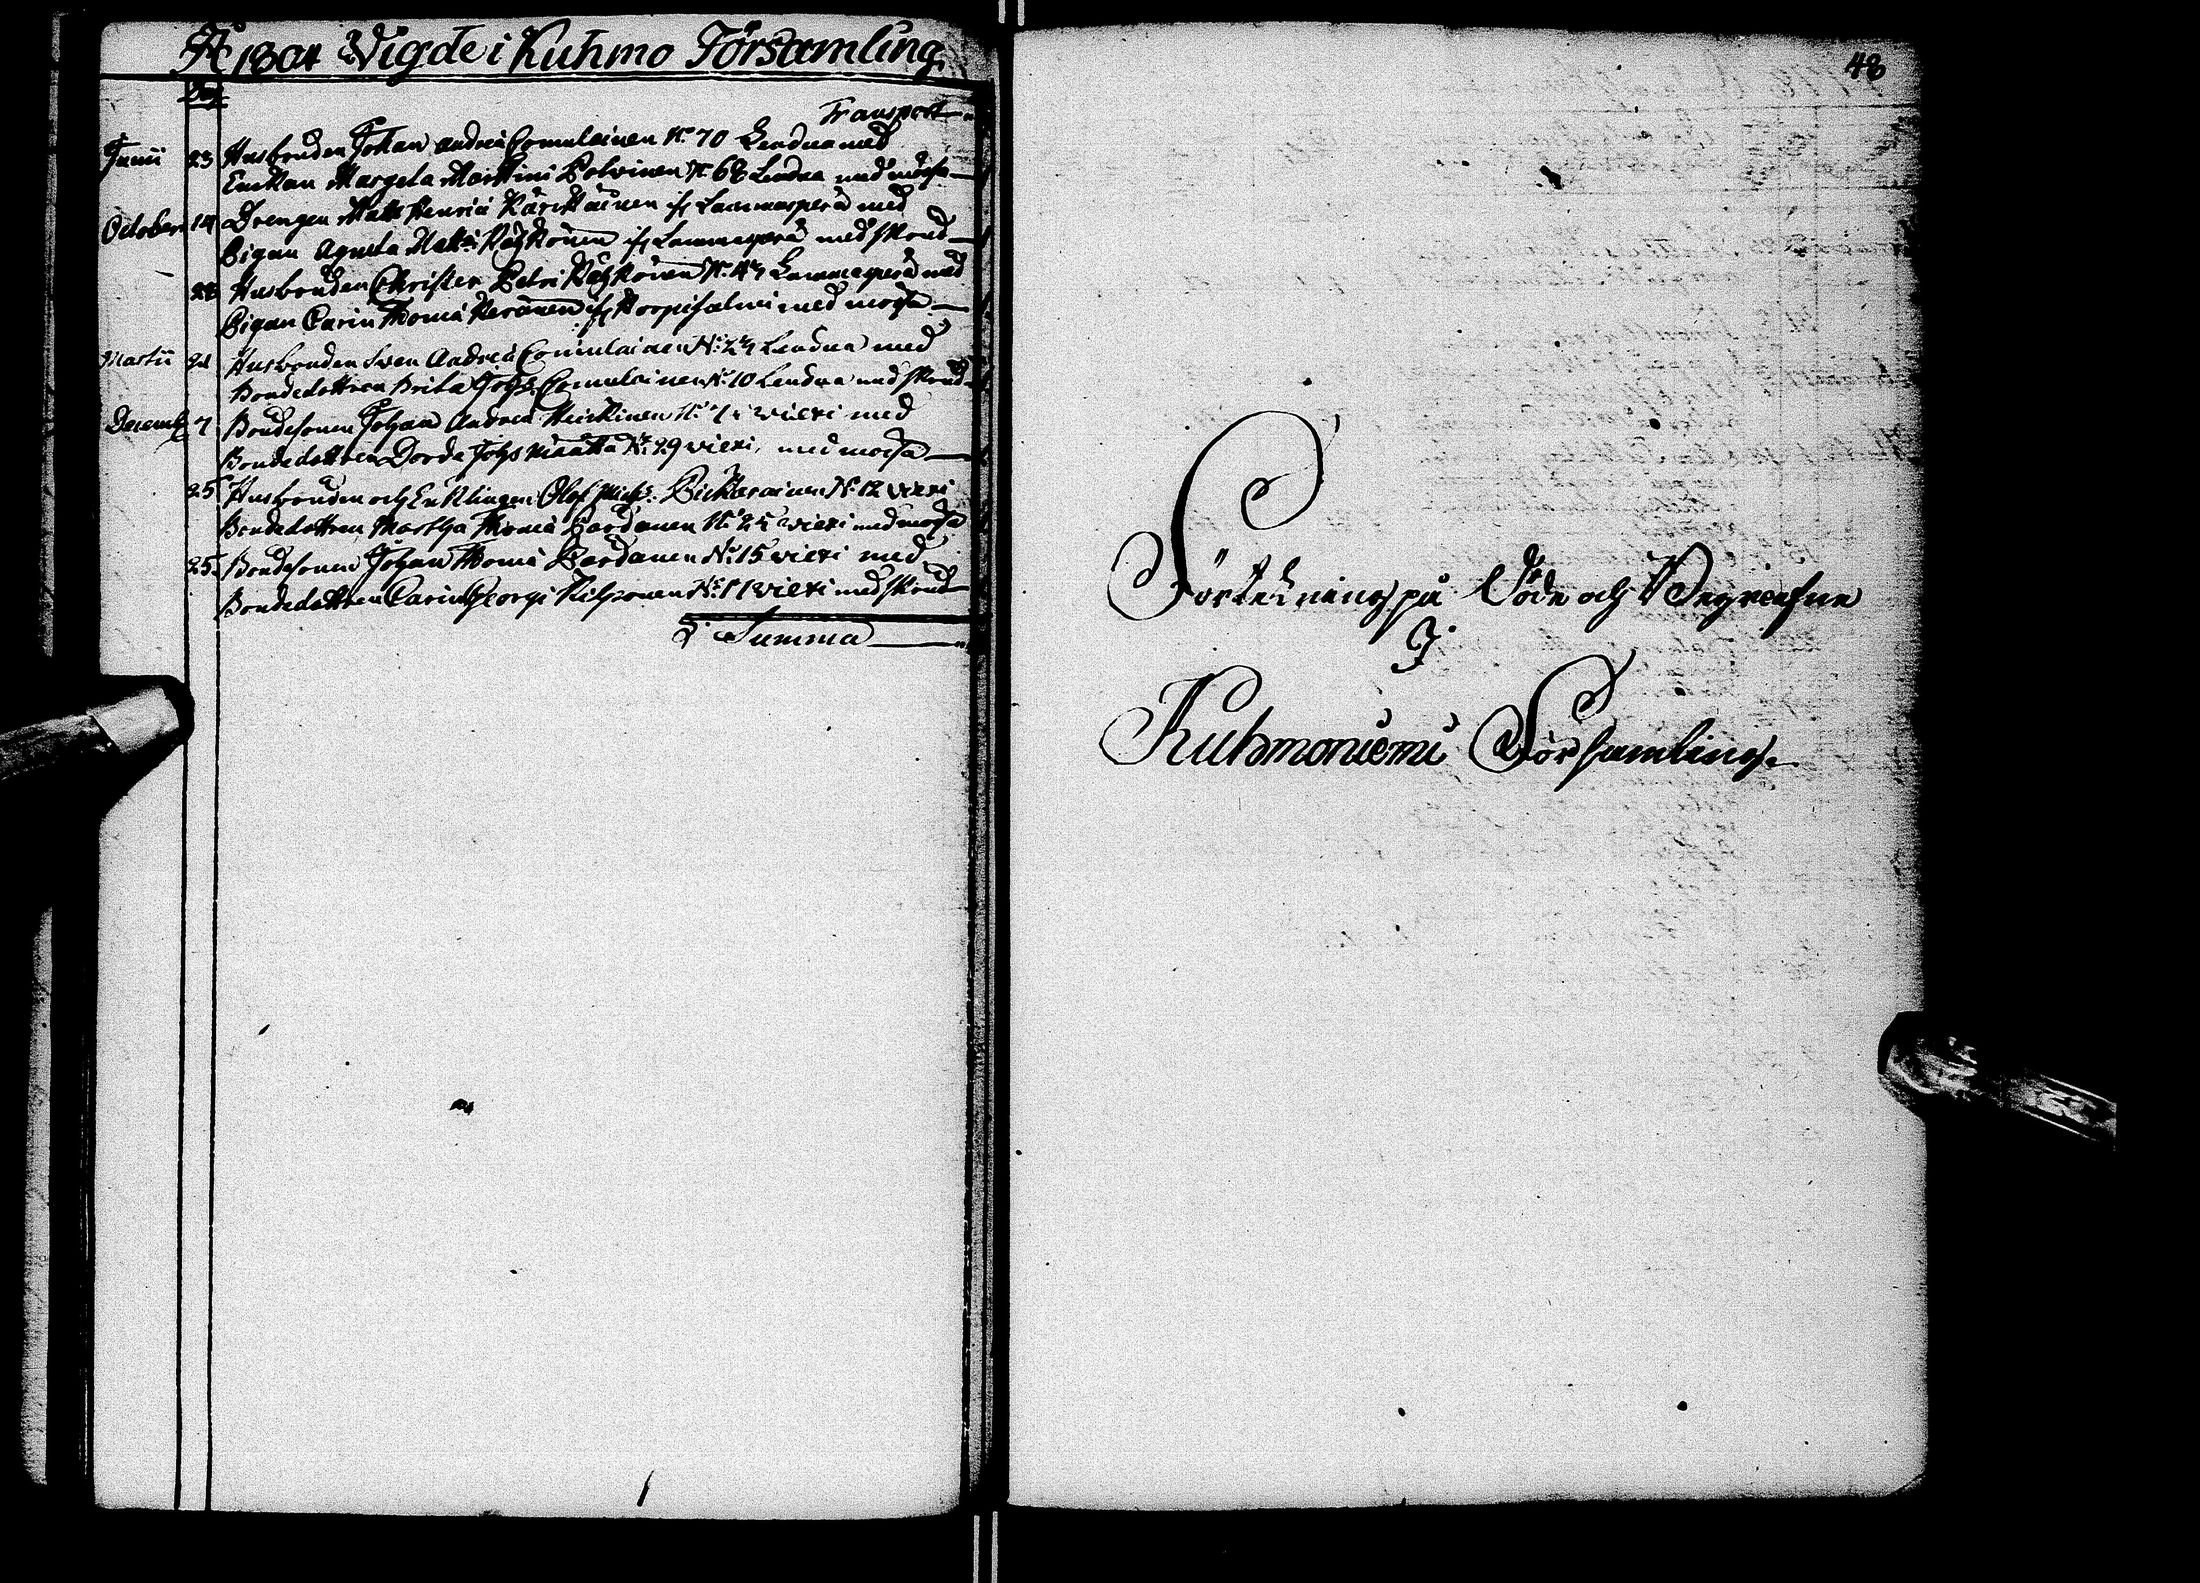 A 1804 Vigde i Kuhmo Församling
Dag
Transport
Junii 23 Husbonden Johan Andreæ Comulainen N:o 70 Lendua med
Enckan Margeta Martini Polvinen N:o 68 Lendua med mössa
October 14 Drengen Matts Henrici Kärckäinen Lammasperä med
Pigan Agneta Matts Räyhönen Lammasperä med skrud
28 Husbonden Christer Petri Räyhönen N:o Lammasperä med
Pigan Carin Thomæ Keränen Korpisalmi med mössa
Martii 21 Husbonden Sven Andreæ Comulainen N:o Lendua med
Bondedottren Brita Johs Comulainen N:o 10 Lendua med skrud
Decemb 7 Bondesonen Johan Andreæ Heickinen N:o 7 viexi med
Bondedottren Dorde Johs N:o 29 viexi, med mössa
25 Husbonden och Encklingen Olof Mich: N:o 12 viexi
Bondedottren Martha Thomæ Pardanen N:o 25 viexi med mössa
25. Bondesonen Johan Thomæ Pardanen N:o 15 viexi med
Bondedottren Carin Georgi Kilponen N:o 11 viexi med skrud
Summa
48
Förtekning på Döde och Begrafne
I
Kuhmoniemi Församling.